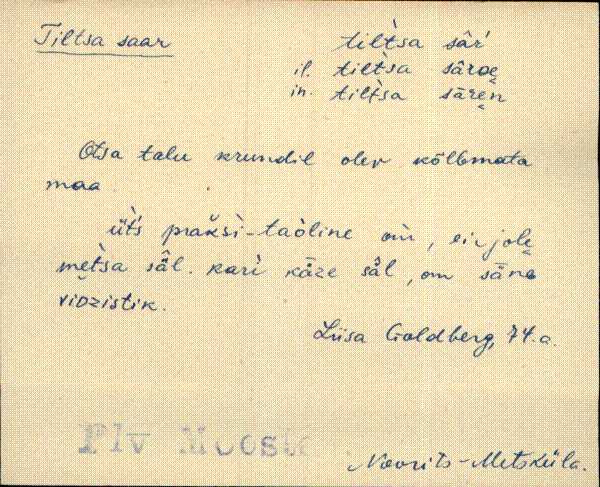 Tiltsa saar
tilt̀sa sār̀
il. tilt̀sa sāroe̬
in. tilt̀sa sāre̬n
Otsa talu krundil olev kõlbmata
maa.
üt̀s prak̆si-taòline om̀, ei jole̬
met̀sa sǟl. kari kǟze sǟl, om sǟne
vidzistik.
Liisa Goldberg, 74. a.
Plv Mooste
Noorits-Metsküla.